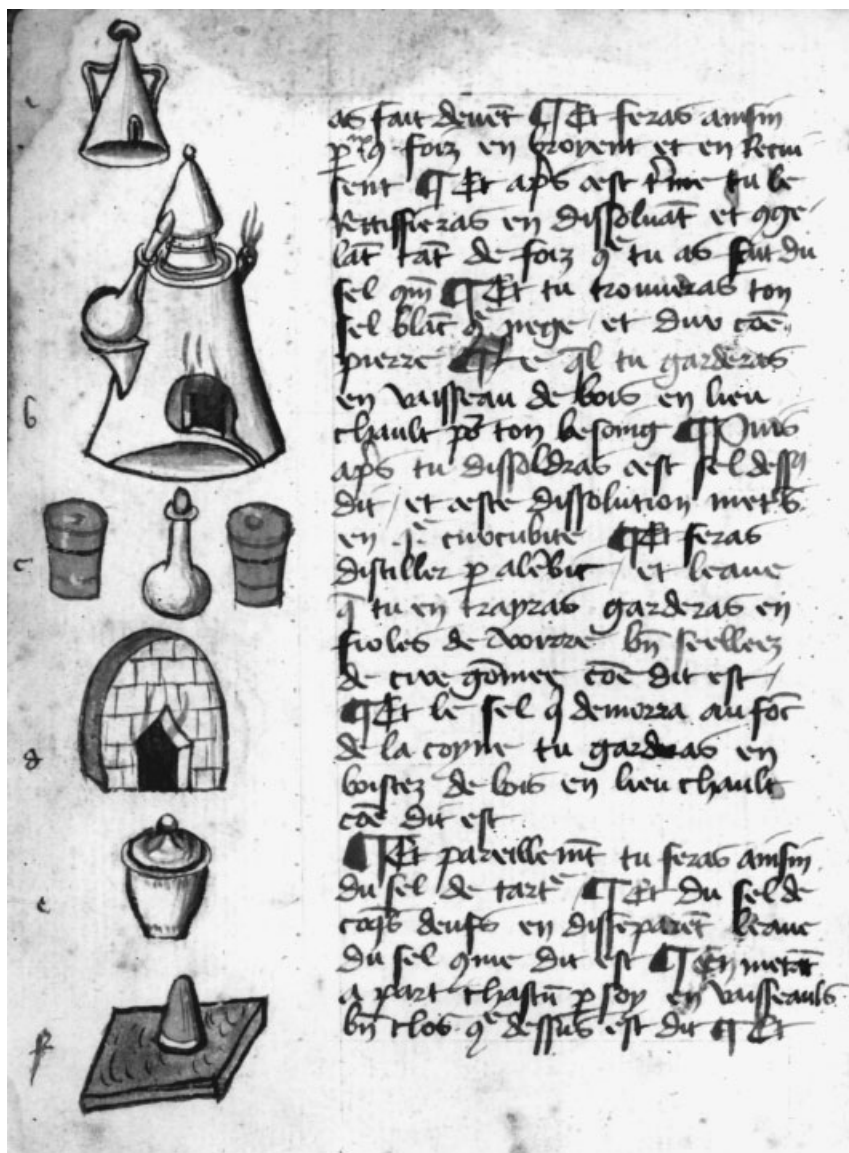 as fait devēt ¶ Et feras ainsin
foiz en broyent et en
sent ¶ Et ap̄s cest tu le
rettiffieras en dissoluāt et ꝯge
lāt tāt de foiz q̄ tu as fait du
sel ¶ Et tu trouveras ton
sel blāc q̄ nege / et dur cōe
pierre ¶ Le q̄l tu garderas
en vaisseau de bois en lieu
chault po᷑ ton besoing ¶ Puis
ap̄s tu dissoldras cest sel dess9
dit / et ceste dissolution
en cucurbite ¶ Et feras
distiller p̱ alēbic / et leaue
q̄ tu en trayras garderas en
fioles de voirre bn̄ seelleez
de cire gōmee cōe dit est /
¶ Et le sel q̄ demorra au fōt
de la tu garderas en
boistez de bois en lieu chault
cōe dit est
¶ Et pareillemn̄t tu feras ainsin
du sel de tart᷑ ¶ Et du sel de
coq̄s deufs en disseparēt leaue
du sel ꝯme dit est ¶ En metāt
a part chascū p̱ soy en vaisseauls
bn̄ clos q̄ dessus est dit ¶ Et
b
c
d
e
f